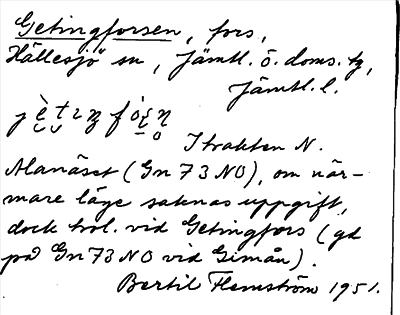 Getingforsen, fors,
Hällesjö sn, Jämtl. ö. doms. tg,
Jämtl. l.
I trakten N.
Alanäset (Gn 73 NO), om när-
mare läge saknas uppgift,
dock trol. vid Getingfors (gd
på Gn 73 NO vid Gimån).
Bertil Flemström 1951.